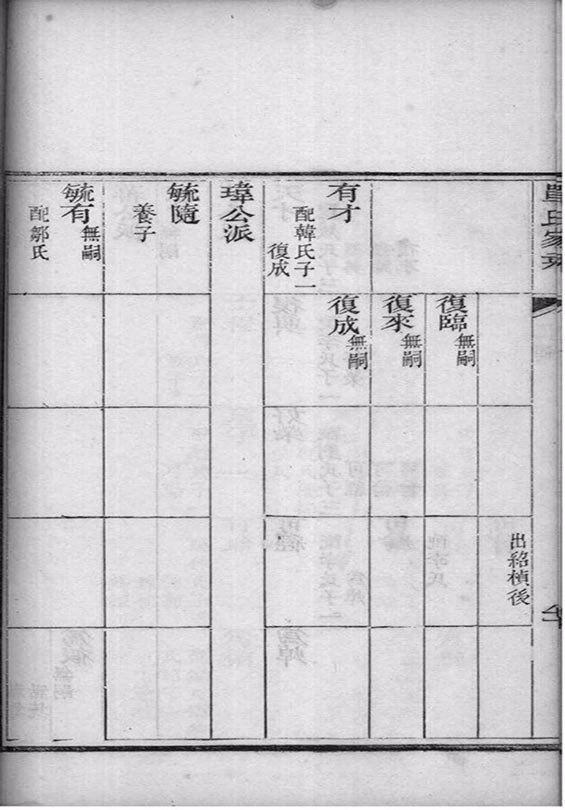 出紹楨後
復臨無嗣
復來無嗣
復成無嗣
有才
配韓氏子一
復成
瑋公派
毓隨
養子
毓有無嗣
配鄒氏